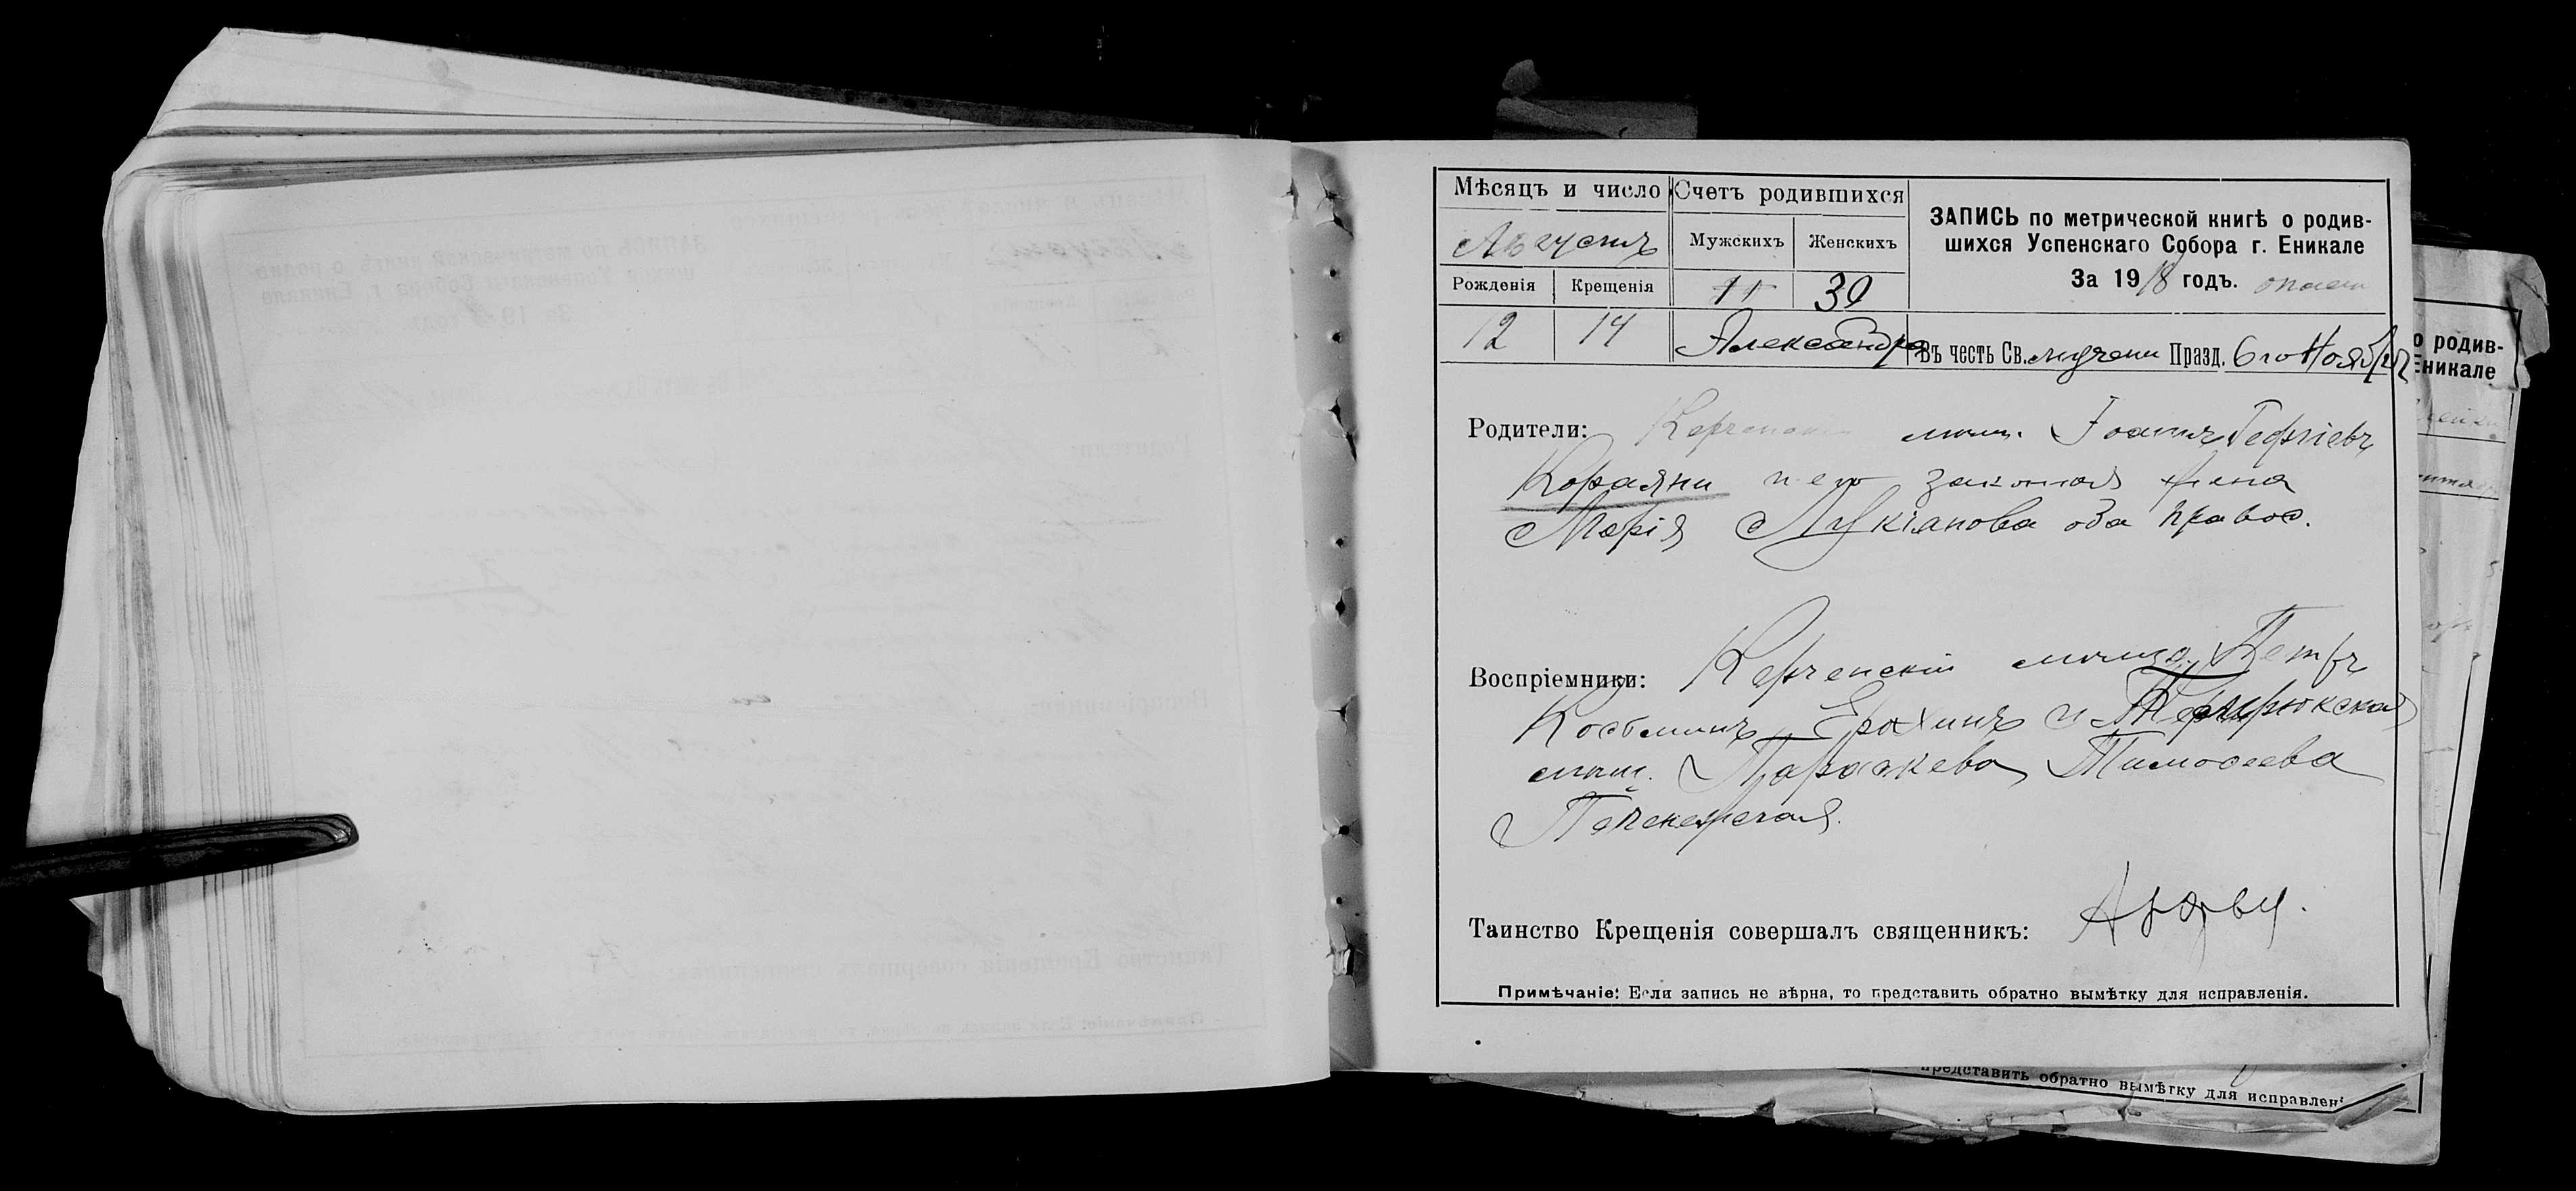 Мѣсяцъ и число
Счетъ родившихся
Августъ
Мужскихъ
Женскихъ
ЗАПИСЬ по метрической книгѣ о родив-
шихся Успенскаго Собора г. Еникале
За 1918 годъ.
Рожденія
Крещенія
11
39
12
14
Александра
Въ честь Св. мучени Празд. 6 го Ноября
Родители: Керченскій мѣщ. Іоаннъ Георгіевъ
Кораяни и его законная жена
Марія Лукіанова оба правос.
Воспріемники: Керченскій мѣщ. Петръ
Косьминъ Ерохинъ и Темрюкская
мѣщ. Параскева Тимоѳеева
Таинство Крещенія совершалъ священникъ:
Примѣчаніе: Если запись не вѣрна, то представить обратно вымѣтку для исправленія.
о родив-
Еникале
представить обратно вымѣтку для исправлені